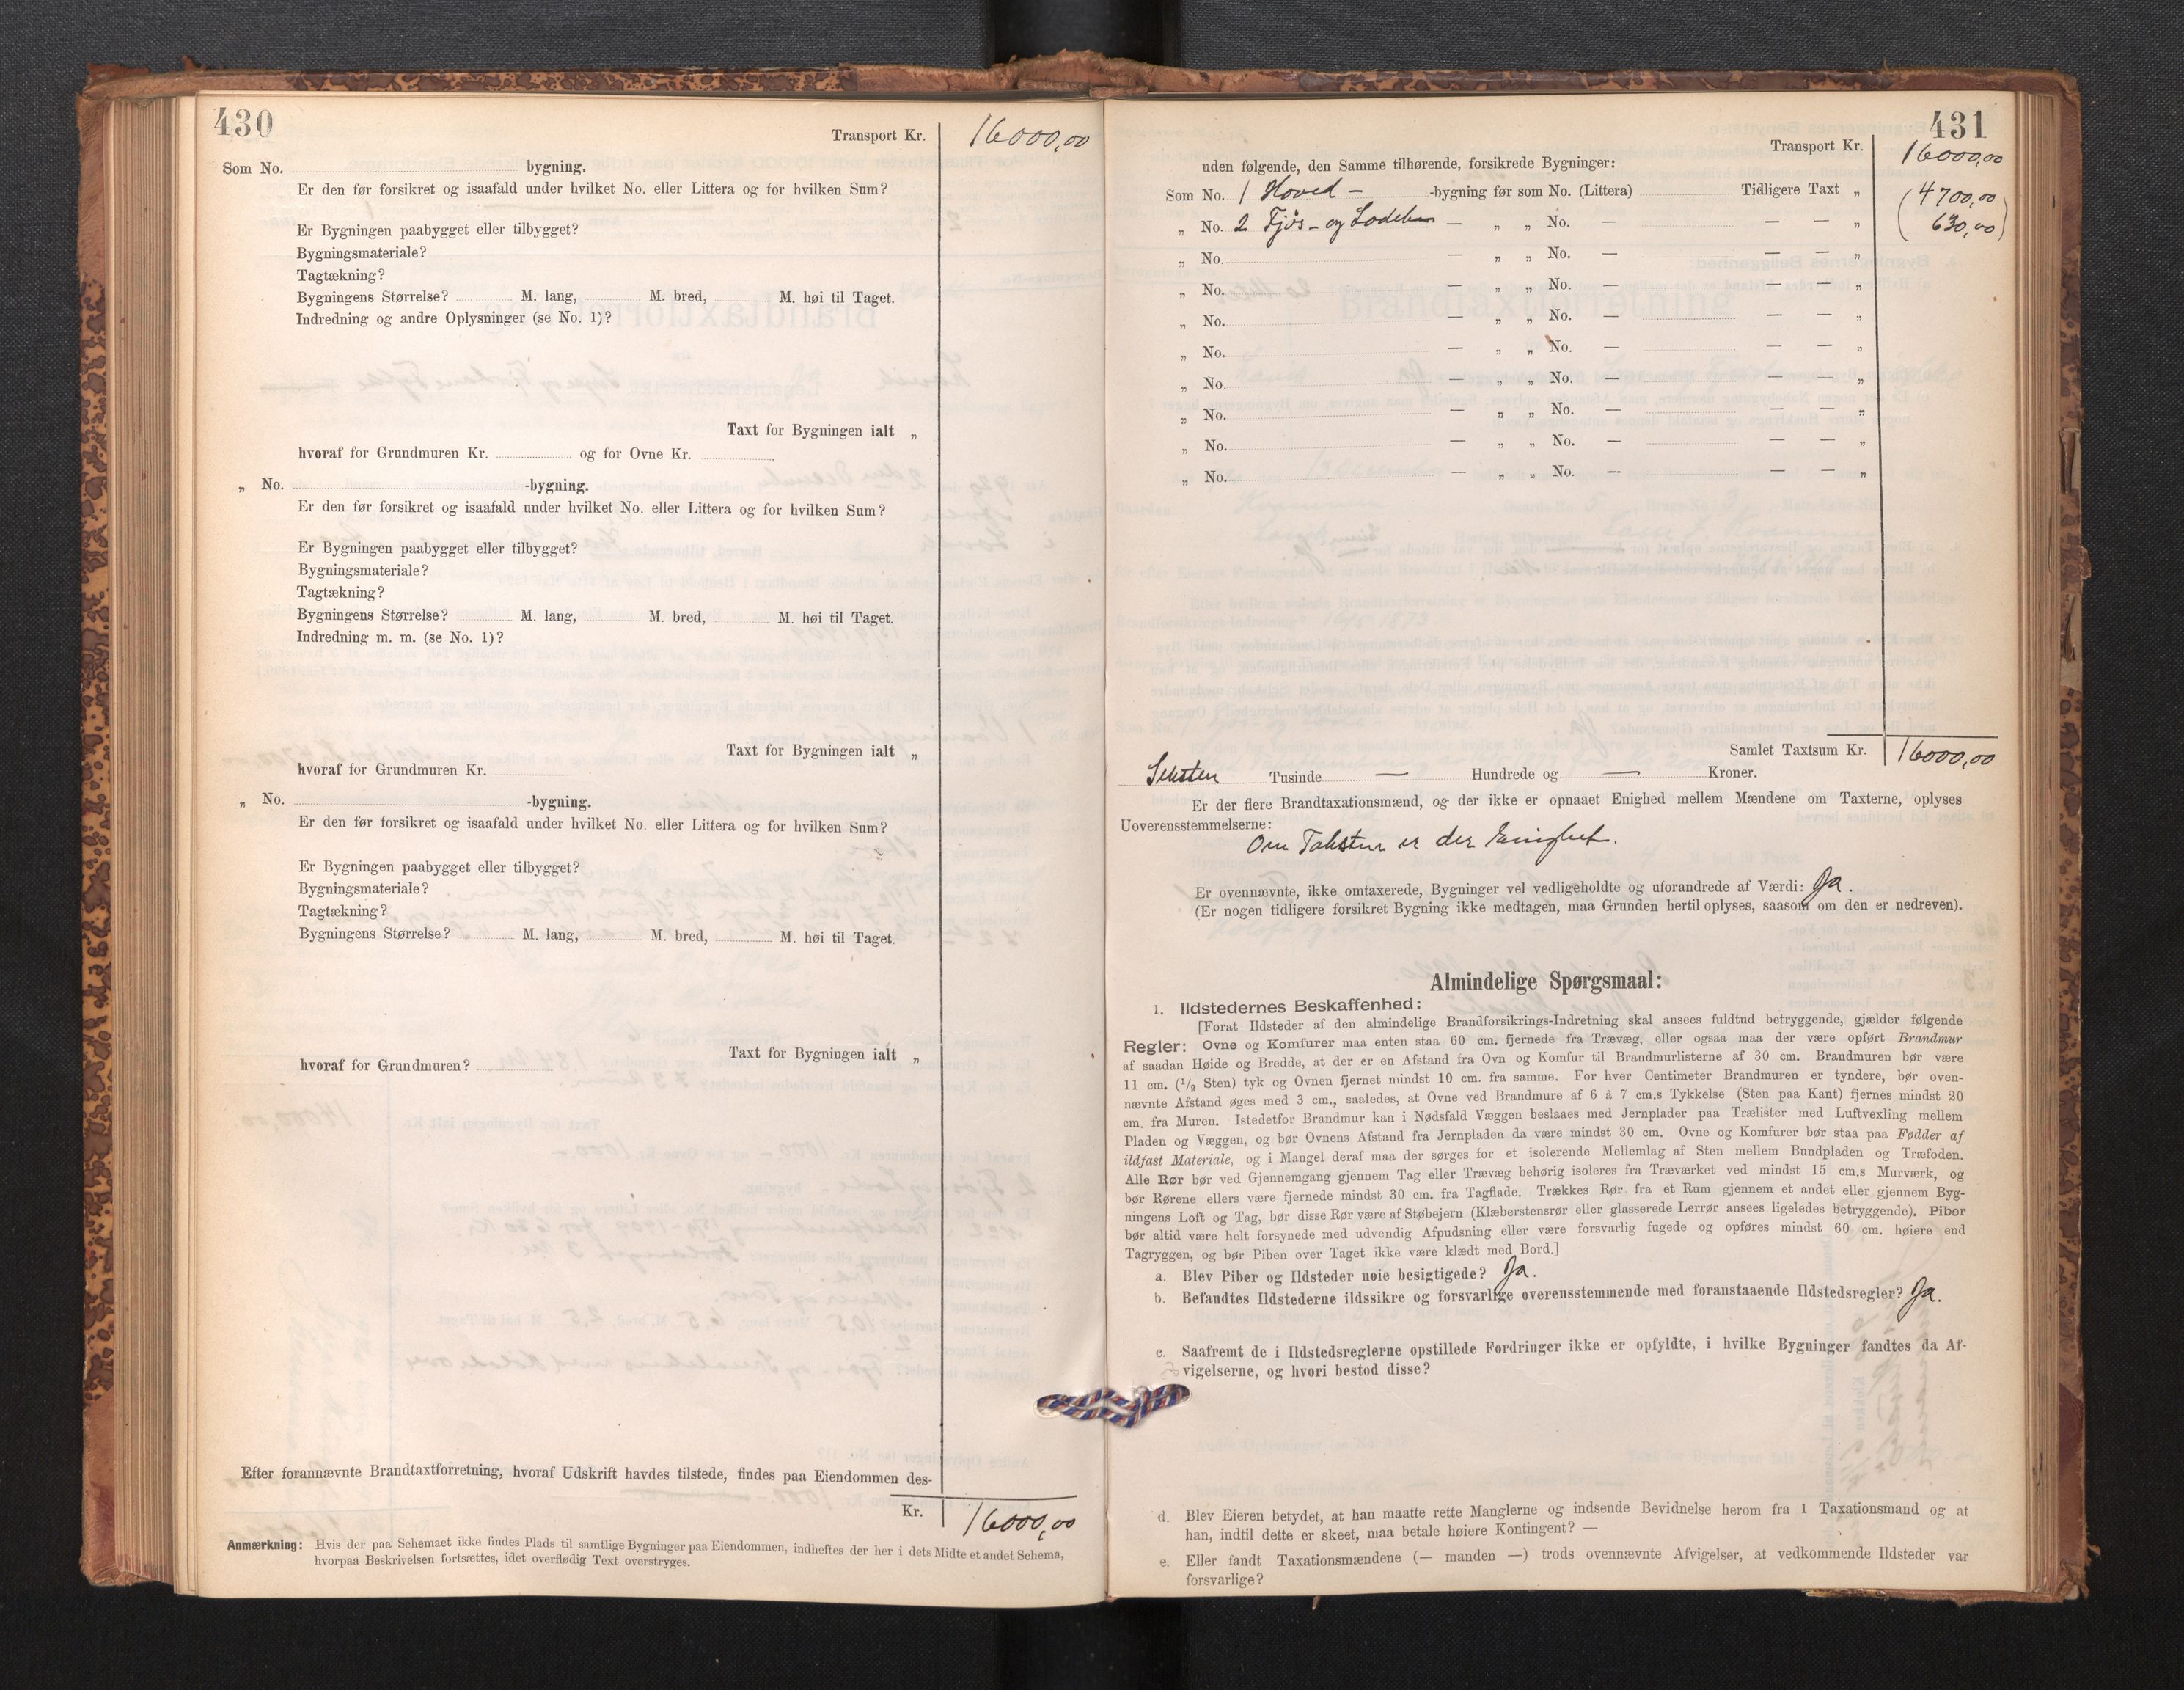 430
Transport Kr. 16000,00
Som No. bygning.
Er den før forsikret og isaafald under hvilket No. eller Littera og for hvilken Sum?
Er Bygningen paabygget eller tilbygget?
Bygningsmateriale?
Tagtækning?
Bygningens Størrelse? M. lang, M. bred, M. høi til Taget.
Indredning og andre Oplysninger (se No. 1)?
Taxt for Bygningen ialt „
hvoraf for Grundmuren Kr. og for Ovne Kr.
„ No. -bygning.
Er den før forsikret og isaafald under hvilket No. eller Littera og for hvilken Sum?
Er Bygningen paabygget eller tilbygget?
Bygningsmateriale?
Tagtækning?
Bygningens Størrelse? M. lang, M. bred, M. høi til Taget.
Indredning m. m. (se No. 1)?
Taxt for Bygningen ialt „
hvoraf for Grundmuren Kr.
„ No. -bygning.
Er den før forsikret og isaafald under hvilket No. eller Littera og for hvilken Sum?
Er Bygningen paabygget eller tilbygget?
Bygningsmateriale?
Tagtækning?
Bygningens Størrelse? M. lang, M. bred, M. høi til Taget.
Taxt for Bygningen ialt „
hvoraf for Grundmuren?
Efter forannævnte Brandtaxtforretning, hvoraf Udskrift havdes tilstede, findes paa Eiendommen des-
Kr. 16000,00
Anmærkning: Hvis der paa Schemaet ikke findes Plads til samtlige Bygninger paa Eiendommen, indheftes der her i dets Midte et andet Schema,
hvorpaa Beskrivelsen fortsættes, idet overflødig Text overstryges.
431
Transport Kr. 16000,00
uden følgende, den Samme tilhørende, forsikrede Bygninger:
Som No. 1 Hoved - -bygning før som No. (Littera) Tidligere Taxt „ (4700,00
„ No. 2 Fjøs- og Lodeb — „ „ No. — — — „ 630,00)
„ No. — „ „ No. — — — „
„ No. — „ „ No. — — — „
„ No. — „ „ No. — — — „
„ No. — „ „ No. — — — „
„ No. — „ „ No. — — — „
„ No. — „ „ No. — — — „
„ No. — „ „ No. — — — „
„ No. — „ „ No. — — — „
Samlet Taxtsum Kr. 16000,00
Seksten Tusinde — Hundrede og — Kroner.
Er der flere Brandtaxationsmænd, og der ikke er opnaaet Enighed mellem Mændene om Taxterne, oplyses
Uoverensstemmelserne:
Om Taksten er der Enighet.
Er ovennævnte, ikke omtaxerede, Bygninger vel vedligeholdte og uforandrede af Værdi: Ja.
(Er nogen tidligere forsikret Bygning ikke medtagen, maa Grunden hertil oplyses, saasom om den er nedreven).
Almindelige Spørgsmaal:
1. Ildstedernes Beskaffenhed:
[Forat Ildsteder af den almindelige Brandforsikrings-Indretning skal ansees fuldtud betryggende, gjælder følgende
Regler: Ovne og Komfurer maa enten staa 60 cm. fjernede fra Trævæg, eller ogsaa maa der være opført Brandmur
af saadan Høide og Bredde, at der er en Afstand fra Ovn og Komfur til Brandmurlisterne af 30 cm. Brandmuren bør være
11 cm. (1/2 Sten) tyk og Ovnen fjernet mindst 10 cm. fra samme. For hver Centimeter Brandmuren er tyndere, bør oven-
nævnte Afstand øges med 3 cm., saaledes, at Ovne ved Brandmure af 6 à 7 cm.s Tykkelse (Sten paa Kant) fjernes mindst 20
cm. fra Muren. Istedetfor Brandmur kan i Nødsfald Væggen beslaaes med Jernplader paa Trælister med Luftvexling mellem
Pladen og Væggen, og bør Ovnens Afstand fra Jernpladen da være mindst 30 cm. Ovne og Komfurer bør staa paa Fødder af
ildfast Materiale, og i Mangel deraf maa der sørges for et isolerende Mellemlag af Sten mellem Bundpladen og Træfoden.
Alle Rør bør ved Gjennemgang gjennem Tag eller Trævæg behørig isoleres fra Træværket ved mindst 15 cm.s Murværk, og
bør Rørene ellers være fjernede mindst 30 cm. fra Tagflade. Trækkes Rør fra et Rum gjennem et andet eller gjennem Byg-
ningens Loft og Tag, bør disse Rør være af Støbejern (Klæberstensrør eller glasserede Lerrør ansees ligeledes betryggende). Piber
bør altid være helt forsynede med udvendig Afpudsning eller være forsvarlig fugede og opføres mindst 60 cm. høiere end
Tagryggen, og bør Piben over Taget ikke være klædt med Bord.]
a. Blev Piber og Ildsteder nøie besigtigede? Ja.
b. Befandtes Ildstederne ildssikre og forsvarlige overensstemmende med foranstaaende Ildstedsregler? Ja.
c. Saafremt de i Ildstedsreglerne opstillede Fordringer ikke er opfyldte, i hvilke Bygninger fandtes da Af-
vigelserne, og hvori bestod disse?
d. Blev Eieren betydet, at han maatte rette Manglerne og indsende Bevidnelse herom fra 1 Taxationsmand og at
han, indtil dette er skeet, maa betale høiere Kontingent? —
e. Eller fandt Taxationsmændene (— manden —) trods ovennævnte Afvigelser, at vedkommende Ildsteder var
forsvarlige?